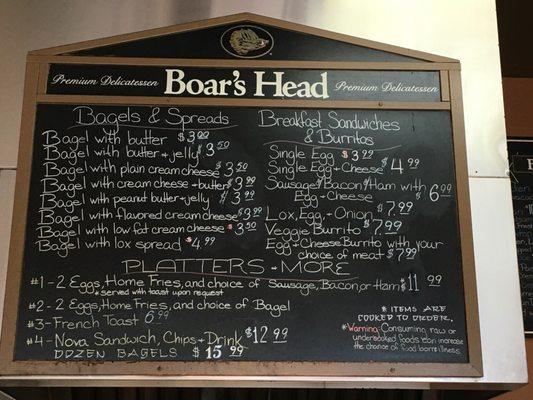 Premium Delicatessen Boar's Head Premium Delicatessen
Bagels & Spreads
Bagel with butter $3.00
Bagel with butter + jelly $3.50
Bagel with plain cream cheese $3.50
Bagel with cream cheese + butter $3.99
Bagel with peanut butter + jelly $3.99
Bagel with flavored cream cheese $3.99
Bagel with low fat cream cheese $3.50
Bagel with lox spread $4.99
Breakfast Sandwiches
& Burritos
Single Egg $3.99
Single Egg + Cheese $4.99
Sausage/Bacon/Ham with
Egg + Cheese $6.99
Lox, Egg, + Onion $7.99
Veggie Burrito $7.99
Egg + Cheese Burrito with your
choice of meat $7.99
Platters + More
#1 - 2 Eggs, Home Fries, and choice of Sausage, Bacon, or Ham $11.99
served with toast upon request
#2 - 2 Eggs, Home Fries, and choice of Bagel
#3 - French Toast 6.99
#4 - Nova Sandwich, Chips + Drink $12.99
Dozen Bagels $15.99
* Items are
cooked to order.
*Warning: Consuming raw or
undercooked foods can increase
the chance of food borne illness.